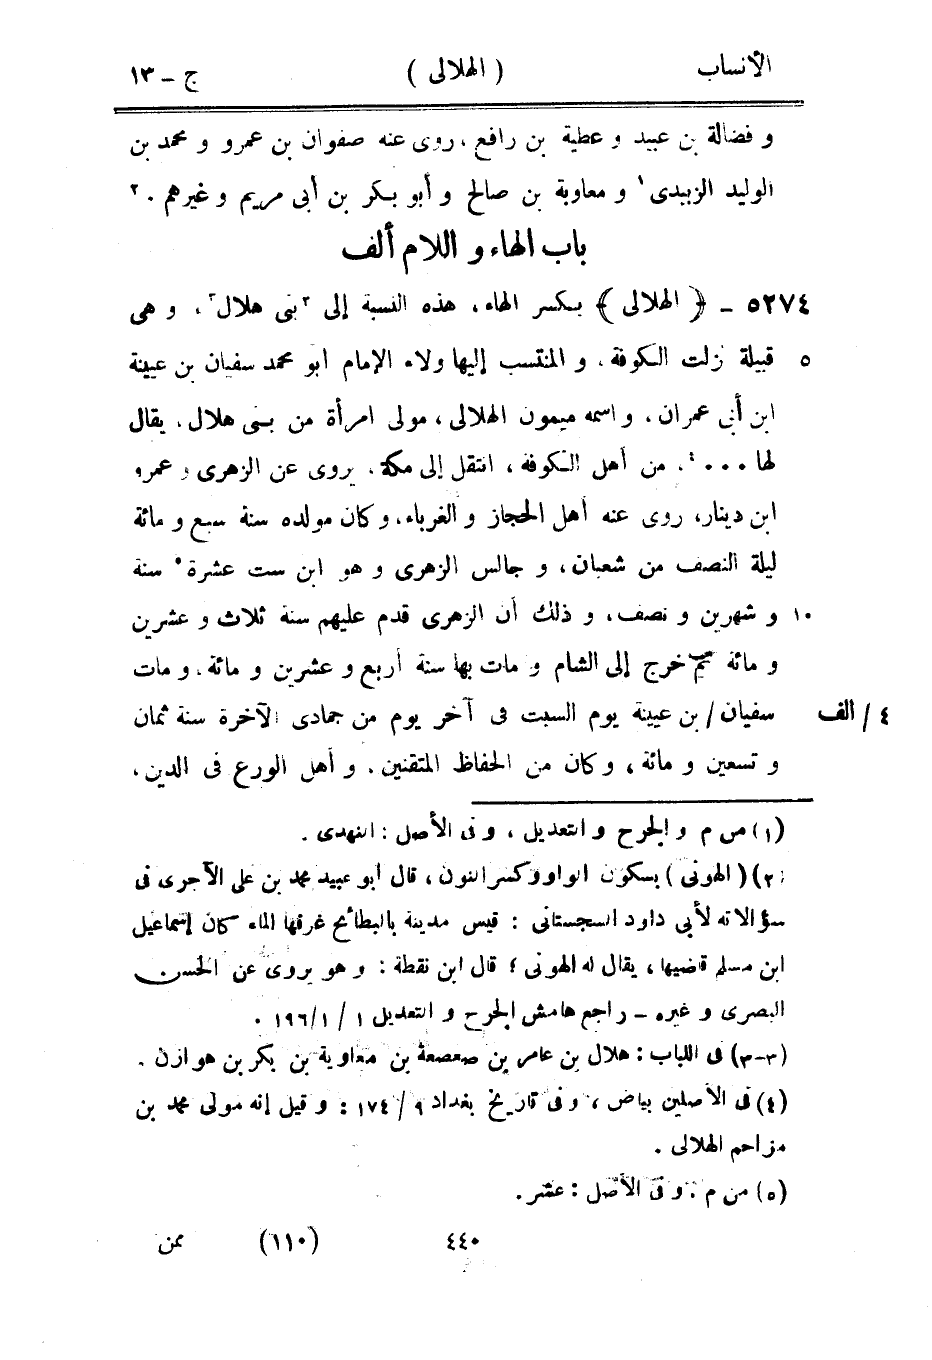 الأنساب ( الهلالى ) ج - ١٣
و فضالة بن عبيد و عطية بن رافع ، روى عنه صفوان بن عمرو و محمد بن
الوليد الزبيدى ١ و معاوية بن صالح و أبو بكر بن أبى مريم و غيرهم . ٢
باب الهاء و اللام ألف
٥٢٧٤ - ﴿ الهلالى ﴾ بكسر الهاء ، هذه النسبة إلى ٣ بنى هلال ٣ ، و هى
قبيلة نزلت الكوفة ، و المنتسب إليها ولاء الإمام ابو محمد سفيان بن عيينة ٥
ابن أبى عمران ، و اسمه ميمون الهلالى ، مولى امرأة من بنى هلال ، يقال
لها ... ٤ ، من أهل الكوفة ، انتقل إلى مكة ، يروى عن الزهرى و عمرو
ابن دينار ، روى عنه أهل الحجاز و الغرباء ، وكان مولده سنة سبع و مائة
ليلة النصف من شعبان ، و جالس الزهرى و هو ابن ست عشرة ٥ سنة
و شهرين و نصف ، و ذلك أن الزهرى قدم عليهم سنة ثلاث و عشرين ١٠
و مائة ثم خرج إلى الشام و مات بها سنة أربع و عشرين و مائة ، و مات
سفيان / بن عيينة يوم السبت فى آخر يوم من جمادى الآخرة سنة ثمان ٤ / الف
و تسعين و مائة ، وكان من الحفاظ المتقنين ، و أهل الورع فى الدين ،
(١) من م و الجرح و التعديل ، و فى الأصل : النهدى .
(٢) ( الهونى ) بسكون الواو وكسر النون ، قال ابو عبيد محمد بن على الآجرى فى
سؤالاته لأبى داود السجستانى : قيس مدينة بالبطائح غرقها الماء كان إسماعيل
ابن مسلم قاضيها ، يقال له الهونى ؛ قال ابن نقطة : و هو يروى عن الحسن
البصرى و غيره - راجع هامش الجرح و التعديل ١ / ١ / ١٩٦ .
(٣-٣) فى اللباب : هلال بن عامر بن صعصعة بن معاوية بن بكر بن هوازن .
(٤) فى الأصلين بياض ، و فى تاريخ بغداد ٩ / ١٧٤ : و قيل إنه مولى محمد بن
مزاحم الهلالى .
(٥) من م ، و فى الأصل : عشر .
٤٤٠ (١١٠) ممن